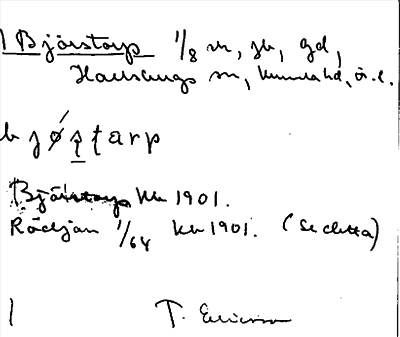 1 Bjärstorp 1/8 m, jb, gd,
Hallsbugs sn, Kumla hd, ö.l.
bjø̨ʂʈarp
Bjärstorp kb 1901.
Rödjan 1/64 kb 1901. (Se detta)
1 T. Ericsson